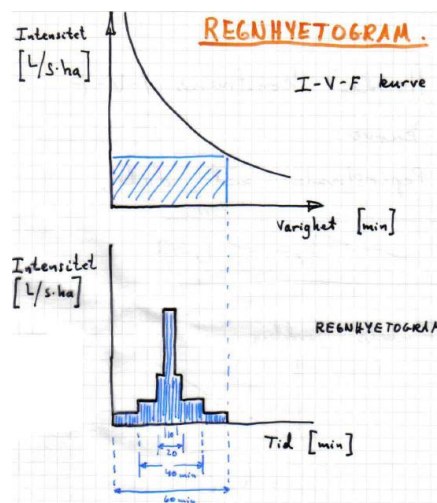 REGNHYETOGRAM.
Intensitet
[L/s·ha]
I-V-F kurve
Varighet [min]
Intensitet
[L/s·ha]
REGNHYETOGRAM
Tid [min]
10
20
40 min
60 min